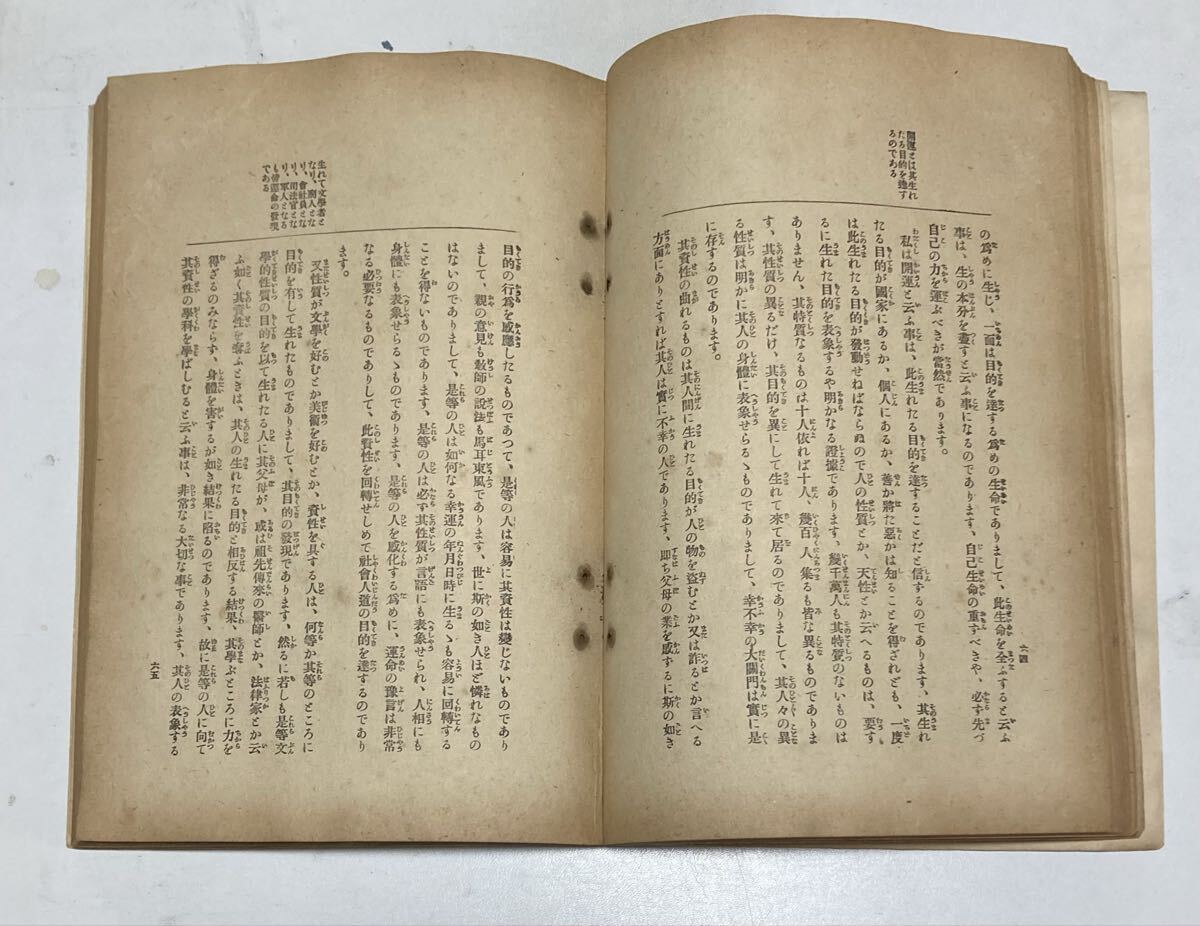 開運とは其生れ
たる目的を達す
るのである
の爲めに生じ、一面は目的を達する爲めの生命でありまして、此生命を全ふすると云ふ
事は、生の本分を盡すと云ふ事になるのであります、自己生命の重すべきや、必す先づ
自己の力を運ぶべきが當然であります。
私は開運と云ふ事は、此生れたる目的を達することだと信するのであります、其生れ
たる目的が國家にあるか、個人にあるか、善か將た惡かは知ることを得ざれども、一度
は此生れたる目的が發動せねばならぬので人の性質とか、天性とか云へるものは、要す
るに生れた目的を表象するや明かなる證據であります、幾千萬人も其特質のないものは
ありません、其特質なるものは十人依れば十人、幾百人集るも皆な異るものでありま
す、其性質の異るだけ、其目的を異にして生れて來て居るのでありまして、其人々の異
る性質は明かに其人の身體に表象せらるゝものでありまして、幸不幸の大關門は實に是
に存するのであります。
其資性の曲れるものは其人間に生れたる目的が人の物を盗むとか又は詐るとか言へる
方面にありとすれば其人は實に不幸の人であります、即ち父母の業を感ずるに斯の如き
六四
生れて文學者と
なり、商人とな
り、會社員とな
り、司法官とな
り、軍人となる
も皆運命の發現
である
目的の行爲を感應したるものであつて、是等の人は容易に其資性は變じないものであり
まして、親の意見も敎師の說法も馬耳東風であります、世に斯の如き人ほど憐れなもの
はないのでありまして、是等の人は如何なる幸運の年月日時に生るゝも容易に回轉する
ことを得ないものであります、是等の人は必ず其性質が言語にも表象せられ、人相にも
身體にも表象せらるゝものであります、是等の人を感化する爲めに、運命の豫言は非常
なる必要なるものでありして、此資性を回轉せしめて社會人道の目的を達するのであり
ます。
又性質が文學を好むとか美術を好むとか、資性を具する人は、何等か其等のところに
目的を有して生れたものでありまして、其目的の發現であります、然るに若しも是等文
學的性質の目的を以て生れたる人に其父母が、或は祖先傳來の醫師とか、法律家とか云
ふ如く其資性を奪ふときは、其人の生れたる目的と相反する結果、其學ぶところに力を
得ざるのみならす、身體を害するが如き結果に陷るのであります、故に是等の人に向て
其資性の學科を學ばしむると云ふ事は、非常なる大切な事であります、其人の表象する
六五